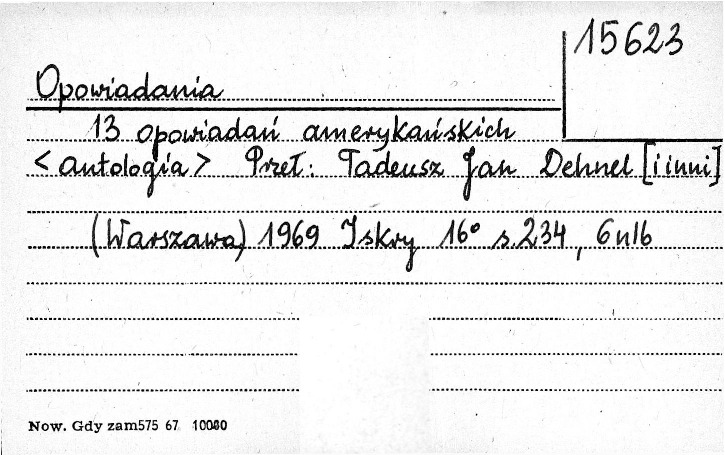 15623
Opowiadania
13 opowiadań amerykańskich
<antologia> Przeł: Tadeusz Jan Dehnel [i inni]
(Warszawa) 1969 Iskry 16° s.234, 6 nlb
Now. Gdy zam575 67 10000